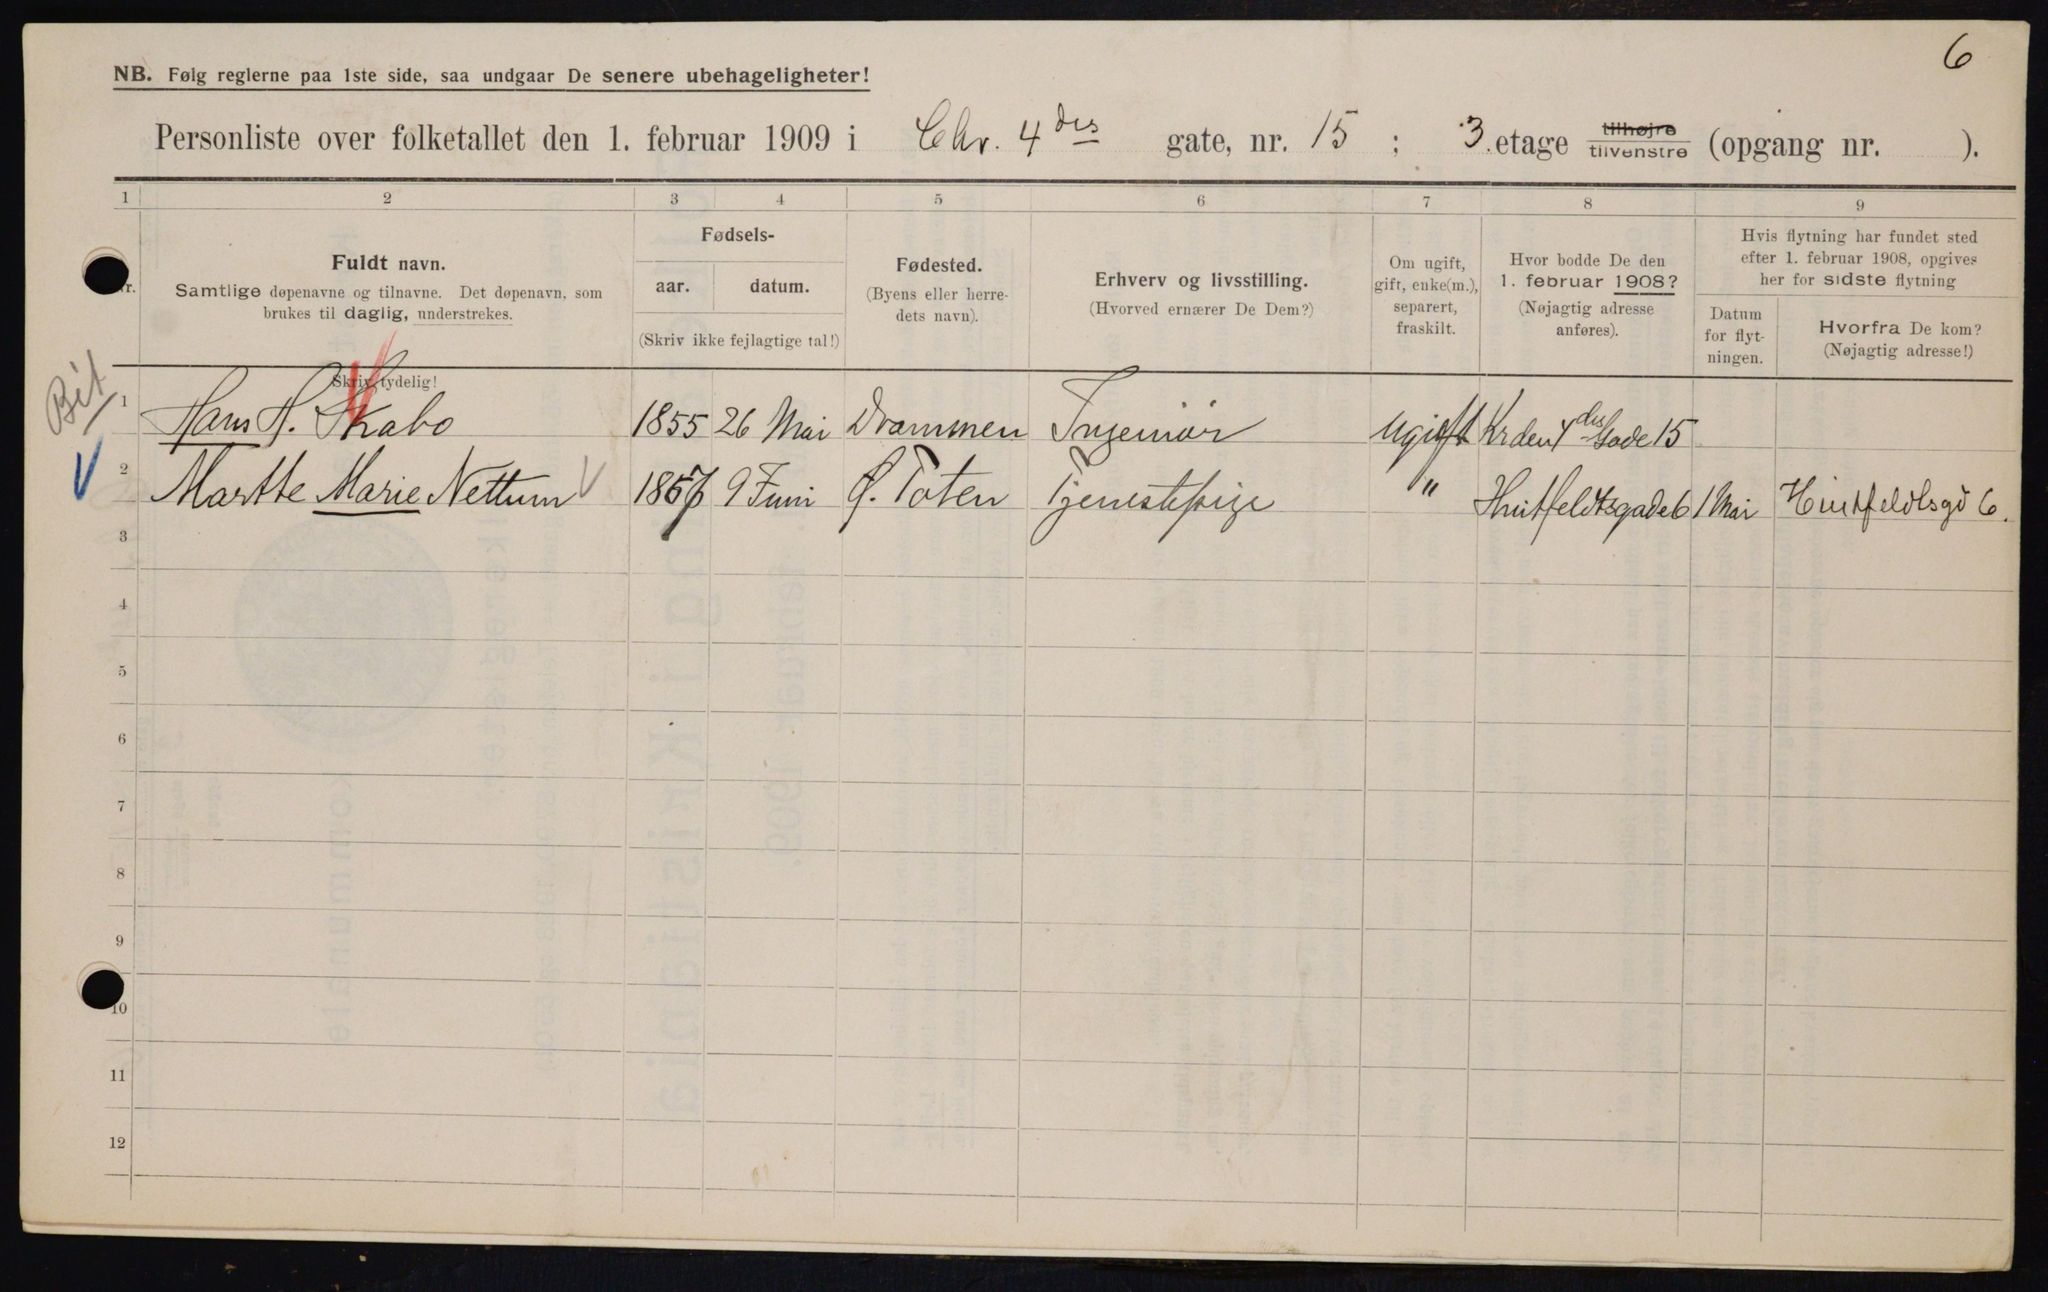 6
NB. Følg reglerne paa 1ste side, saa undgaar De senere ubehageligheter!
Personliste over folketallet den 1. februar 1909 i Chr. 4 des gate, nr. 15 ; 3. etage tilhøjre tilvenstre (opgang nr. ).
1 2 3 4 5 6 7 8 9
Nr.
Fuldt navn.
Samtlige døpenavne og tilnavne. Det døpenavn, som
brukes til daglig, understrekes.
Skriv tydelig!
Fødsels-
aar. datum.
(Skriv ikke fejlagtige tal!)
Fødested.
(Byens eller herre-
dets navn).
Erhverv og livsstilling.
(Hvorved ernærer De Dem?)
Om ugift,
gift, enke(m.),
separert,
fraskilt.
Hvor bodde De den
1. februar 1908?
(Nøjagtig adresse
anføres).
Hvis flytning har fundet sted
efter 1. februar 1908, opgives
her for sidste flytning
Datum
for flyt-
ningen.
Hvorfra De kom?
(Nøjagtig adresse!)
Bit
1 Hans H. Skabo 1855 26 Mai Drammen Ingeniør ugift Kr den 4 des Gade 15
2 Marthe Marie Nettum 9 Juni Ø. Toten Tjenestepige " Huitfeldtsgade 6 1 Mai Huitfeldtsgd 6.
3
4
5
6
7
8
9
10
11
12